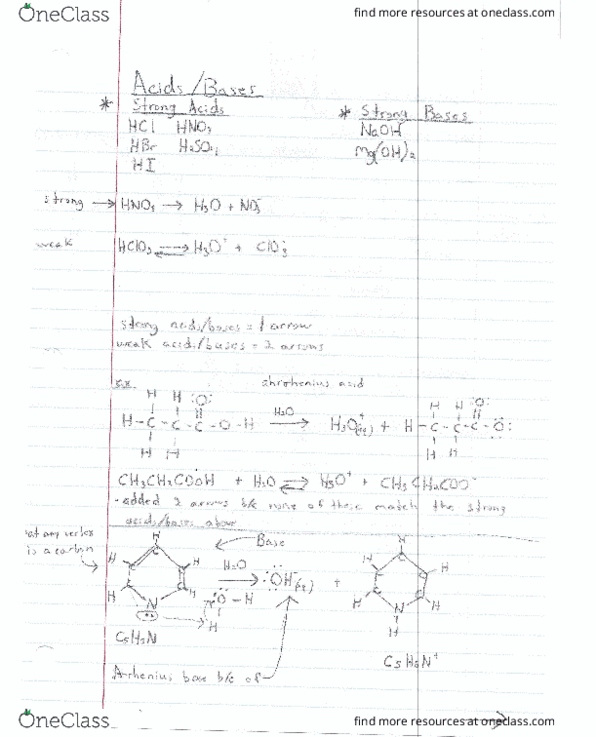 OneClass
find more resources at oneclass.com
Acids/Bases
* Strong Acids
* Strong Bases
HCl HNO3
NaOH
HBr H2SO4
Mg(OH)2
HI
strong → HNO3 → H3O + NO3-
weak HClO3 ⇌ H3O+ + ClO3-
strong acids/bases = 1 arrow
weak acids/bases = 2 arrows
ex. Ahrrhenius acid
H H :O:
H-C-C-C-O-H H2O → H3O+(aq) + H-C-C-C-O:
H H
CH3CH2COOH + H2O ⇌ H3O+ + CH3CH2COO-
- added 2 arrows b/c none of these match the strong
acids/bases above
*at any vertex
is a carbon
Base
H2O → :OH-(aq) +
C5H5N
C5H6N+
Arrhenius base b/c of
OneClass
find more resources at oneclass.com